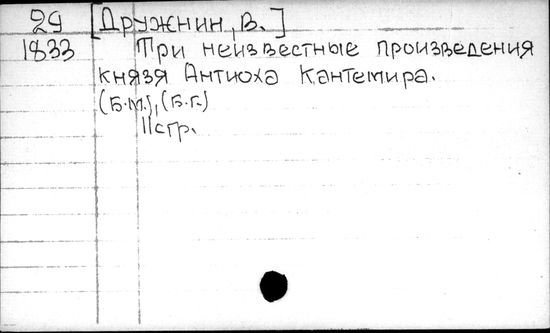 29 [Дружнин, В.]
1833 Три неизвестные произведения
князя Антиоха Кантемира.
(Б.М.), (Б.Г.)
11стр.